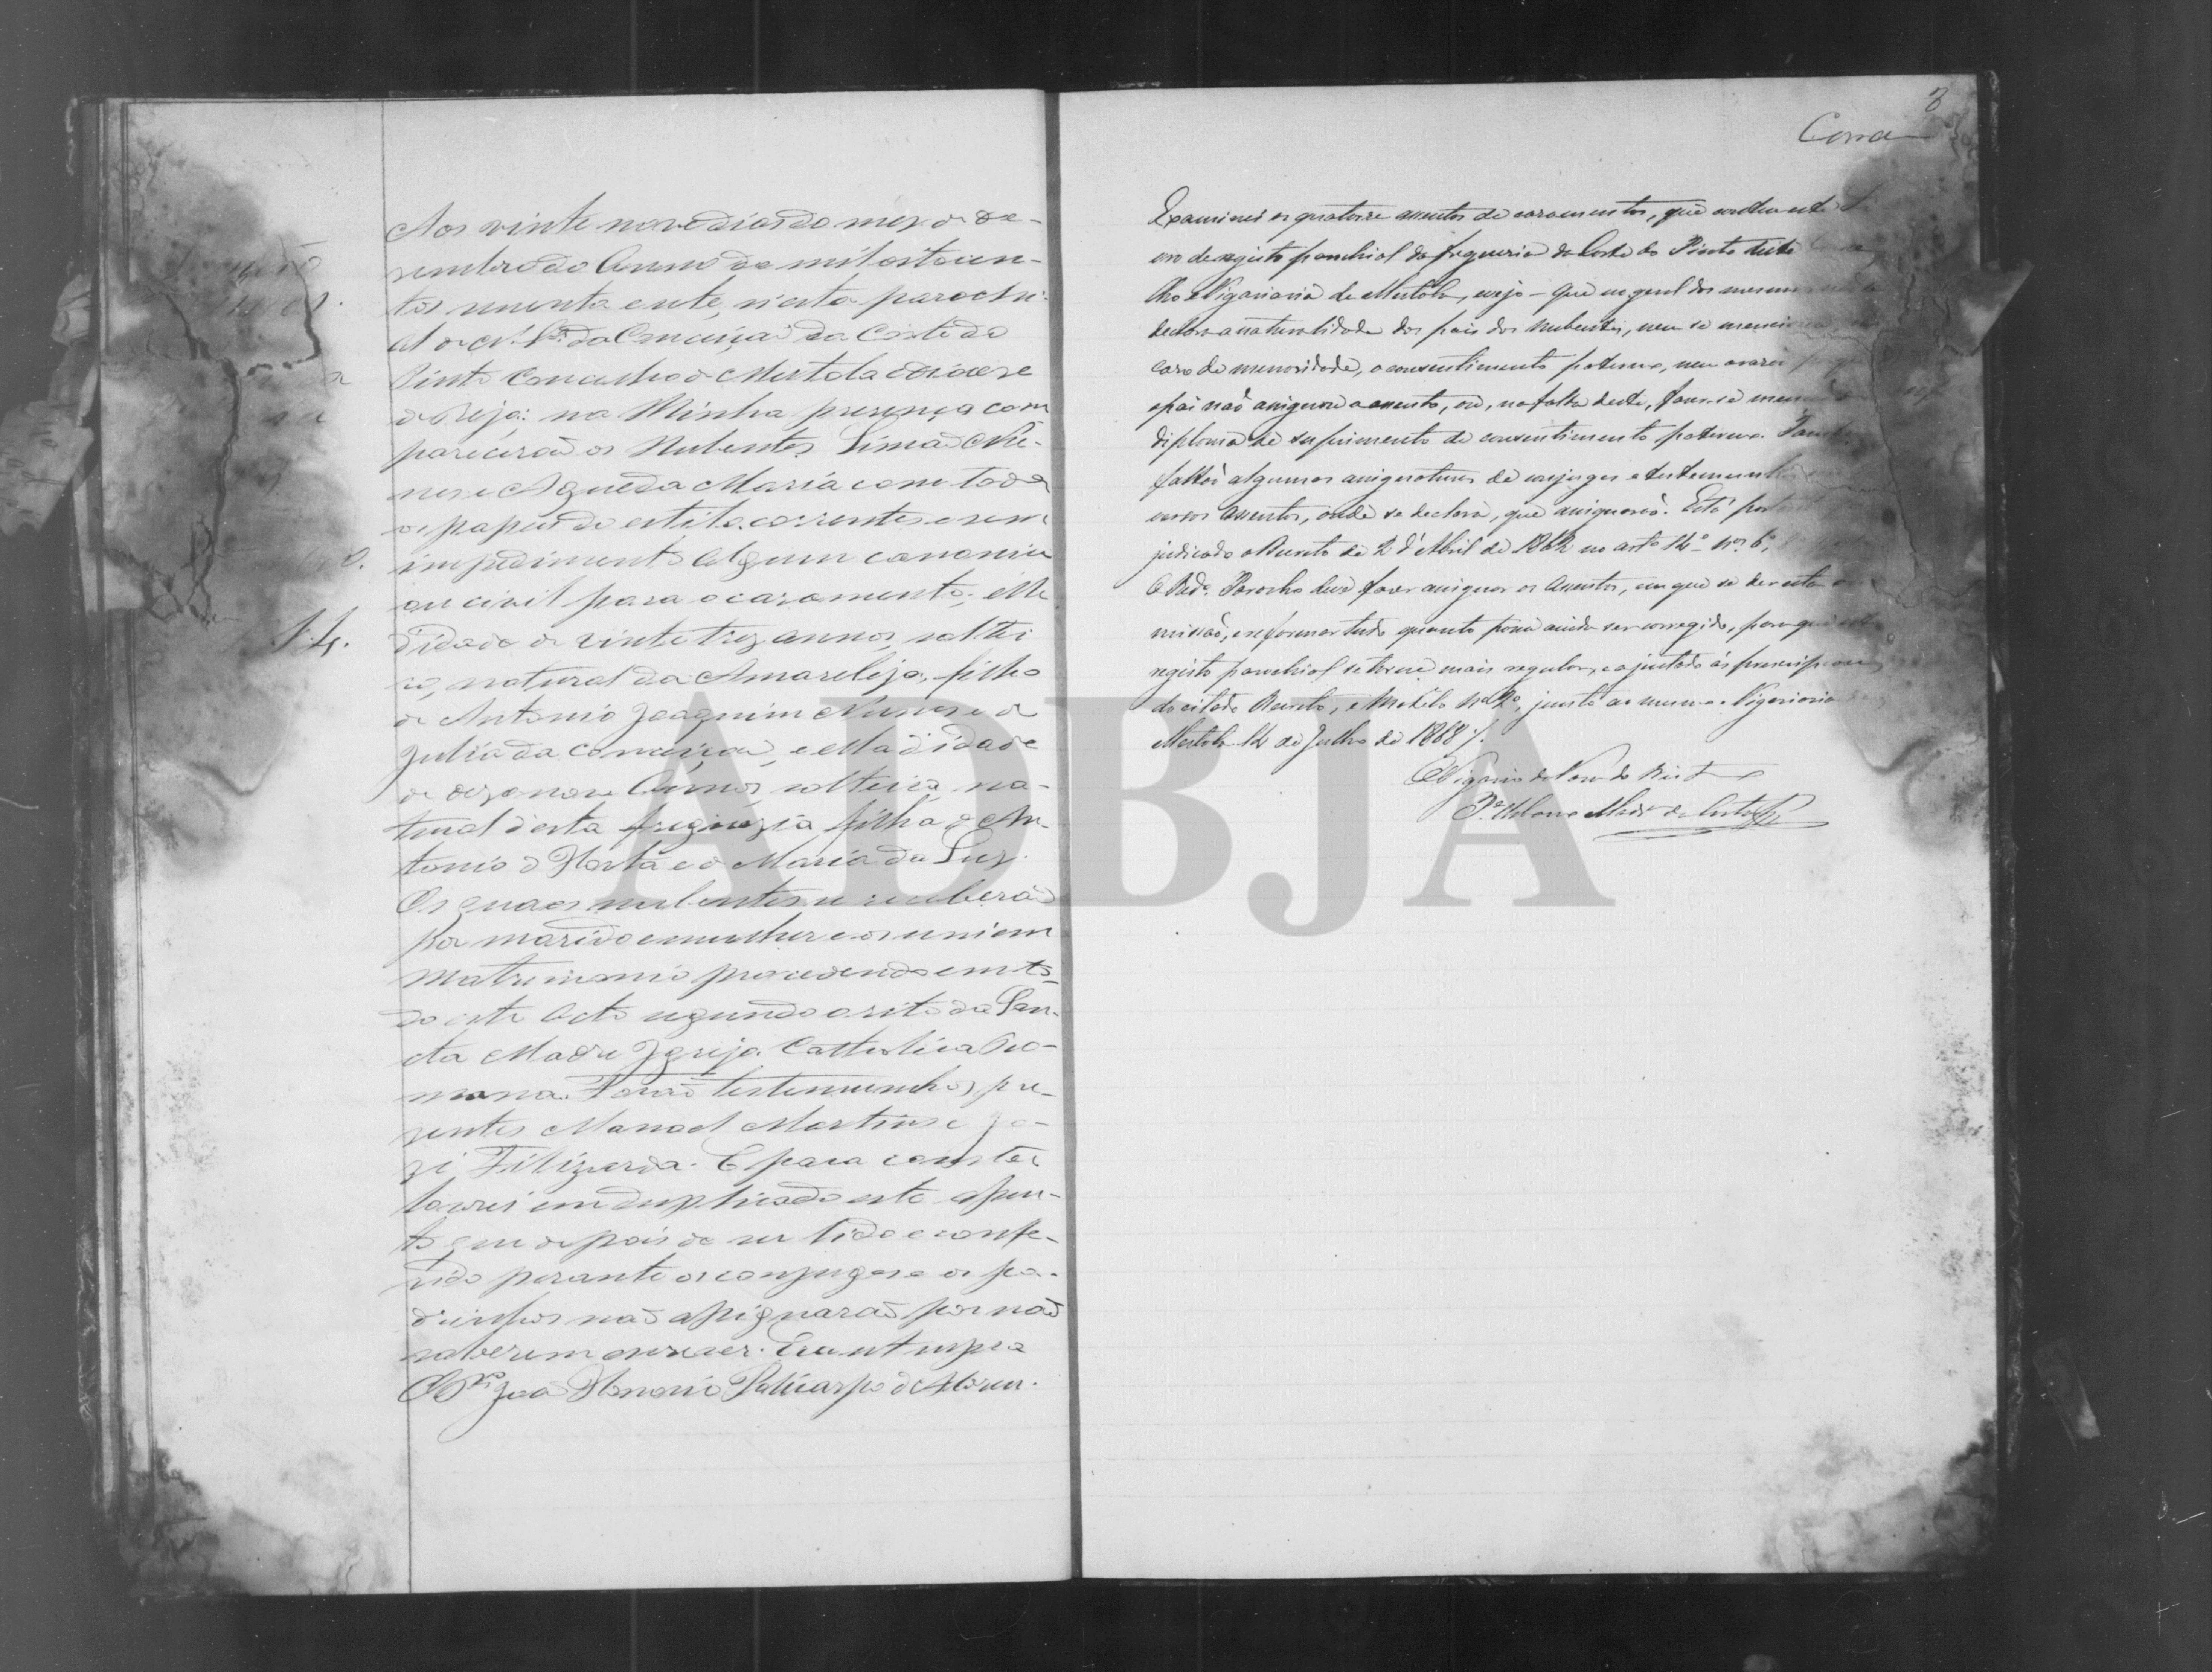 Aos vinte nove dias do mez de De-
zembro do Anno de mil oitocen-
tos secenta e sete, n'esta parochi-
al de N. Srª da Conceiçaõ da Corte do
Pinto Concelho de Mertola diocese
de Beja: na Minha presença com
parecerão os Nubentes Simaõ Nu-
nes e Agueda Maria com todos
os papeis do estilo correntes e sem
impedimento algum canonico
ou civil para o casamento; elle
14.
d'idade de vinte trez annos, soltei
ro, natural da Amareleja, filho
de Antonio Joaquim Nunes e de
Julia da Conceiçaõ, e ella d'idade
de dezanove Annos, solteira, na-
tural d'esta freguezia filha de An-
tonio d'Horta e de Maria da Luz.
Os quaes nubentes se receberaõ
por marido e mulher e os uni em
Matrimonio procedendo em to-
do este Acto segundo o rito da San-
cta Madre Igreja Catholica Ro-
mana. Foraõ testemunhas pre-
zentes Manoel Martins e Jo-
zé Felizarda. E para constar
lavrei em duplicado este assen-
to, que depois de ser lido e confe-
rido perante os conjuges e os pa-
drinhos naõ assignaraõ por naõ
saberem escrever. Era ut supra
O Pr. Joaõ Honorio Policarpo d'Abreu.
8
Examinei os quatorze assentos de casamentos, que contem este
vro de registo parochial da freguesia da Corte do Pinto deste
lho e Vigariaria de Mertola, e vejo - que em geral dos mesmos
declara a naturalidade dos pais dos nubentes, nem se menciona
caso de menoridade, o consentimento paterno, nem a razaõ
o pai naõ assignou o assento, ou, na falta deste, faz-se
diploma de suprimento de consentimento paterno.
faltaõ algumas assignaturas de conjuges e testemunhas
versos assentos, onde se declara, que assignaraõ. Está
judicado o Decreto de 2 d'Abril de 1862 no artº 14º nos 6º,
O Revdº Parocho deve fazer assignar os assentos, em que se der esta
missaõ, e reformar tudo quanto possa ainda ser corregido, para que
registo parochial se torne mais regular, e ajustado ás prescripções
do citado Decreto, e Modelo nº 2º, junto ao mesmo. Vigariaria
Mertola 14 de Julho de 1868.
O Vigario da Vara do